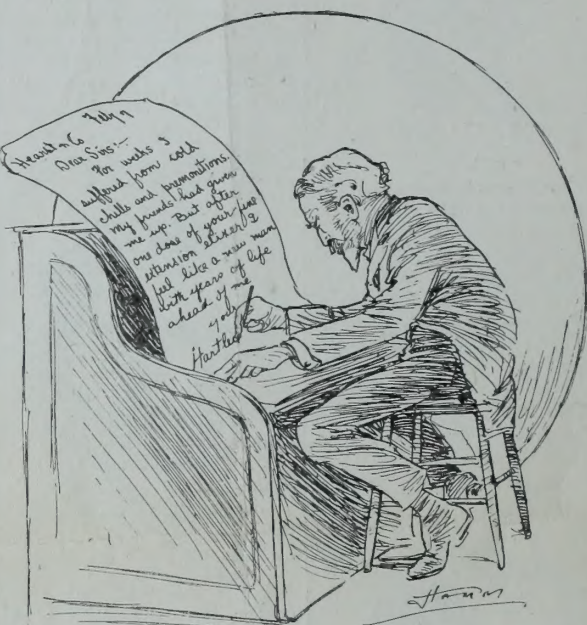 Feby 17
Hearst & Co
Dear Sirs:—
For weeks I
suffered from cold
chills and premonitions.
My friends had given
me up. But after
one dose of your fine
extension elixer I
feel like a new man
with years of life
ahead of me
yours
Hartle